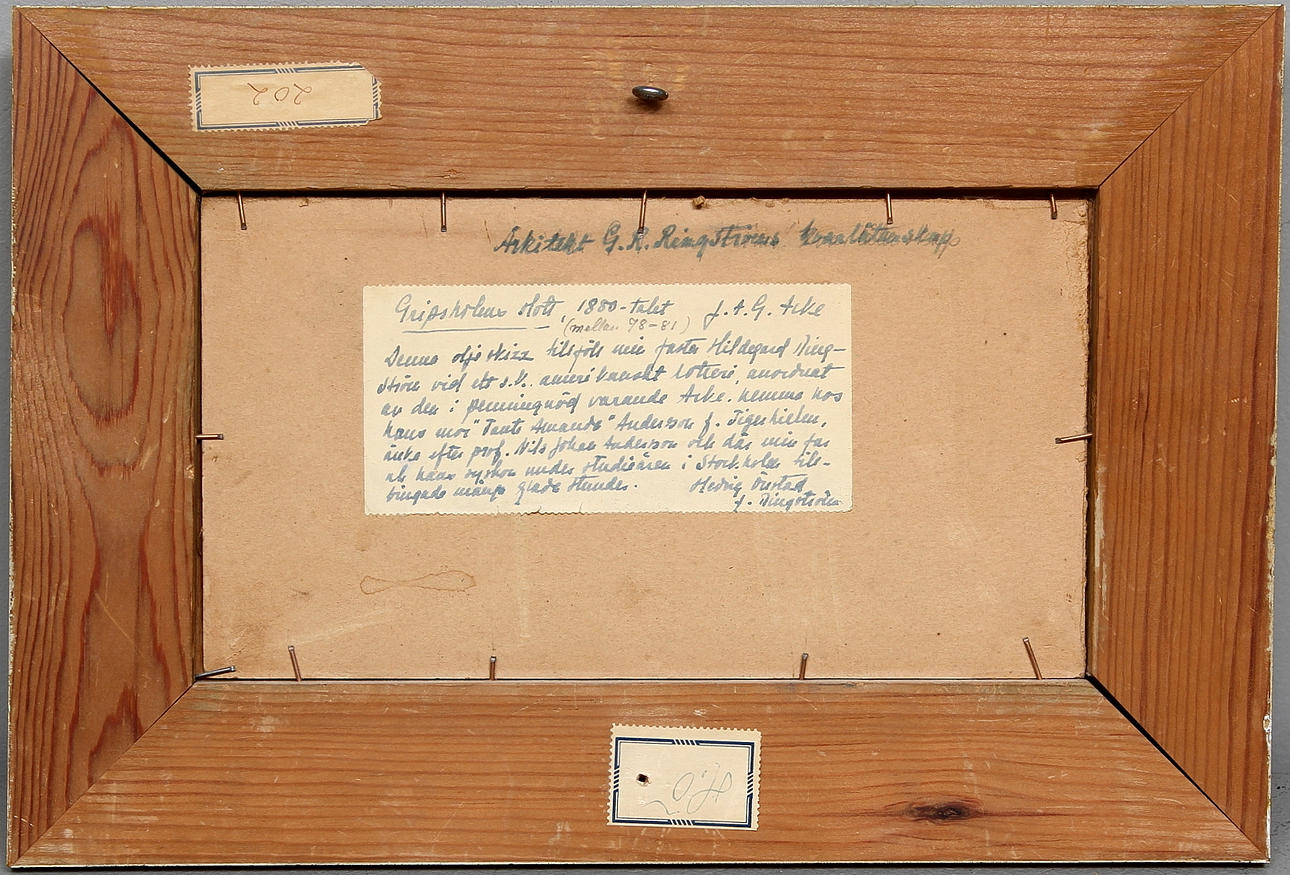 202
Arkitekt G. R. Ringströms kvarlåtenskap
Gripsholms slott, 1880-talet J. A. G. Acke
(mellan 78-81)
Denna oljeskizz tillföll min faster Hildegard Ring-
ström vid ett s.k. amerikanskt lotteri, anordnat
av den i penningnöd varande Acke, hemma hos
hans mor "Tante Amanda" Andersson f. Tigerhielm,
änka efter prof. Nils Johan Andersson och där min far
och hans syskon under studieåren i Stockholm till-
bringade många glada stunder. Hedvig Önstad
f. Ringström